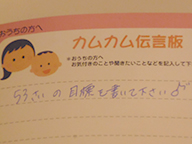 おうちの方へ
カムカム伝言板
※おうちの方へ
お気付きのことや聞きたいことなどを記入して下
の目標を書いて下さい